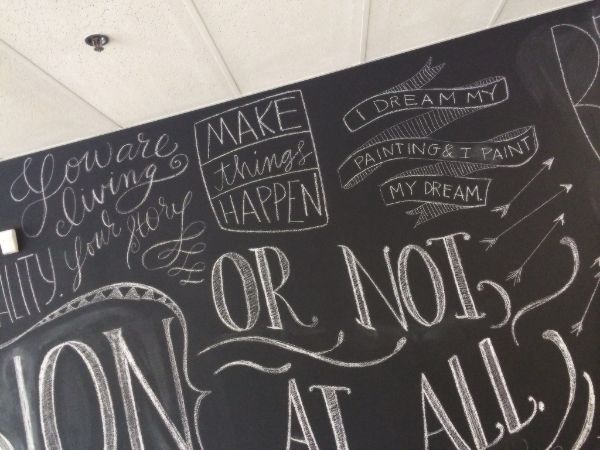 You are
living
your story
MAKE
things
HAPPEN
I DREAM MY
PAINTING & I PAINT
MY DREAM.
OR NOT,
AT ALL.